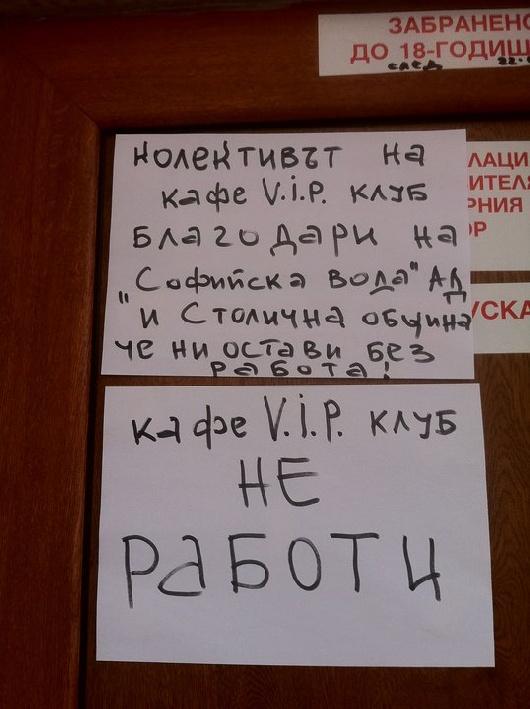 ЗАБРАНЕНО
ДО 18-ГОДИШ
след 22.
КОЛЕКТИВЪТ НА
кафе V.i.P. КЛУБ
БЛАГОДАРИ на
"Софийска вода" АД
и Столична община
че ни остави без
работа!
ЛАЦИ
ИТЕЛЯ
РНИЯ
ОР
УСКА
кафе V.i.P. КЛУБ
НЕ
РАБОТИ